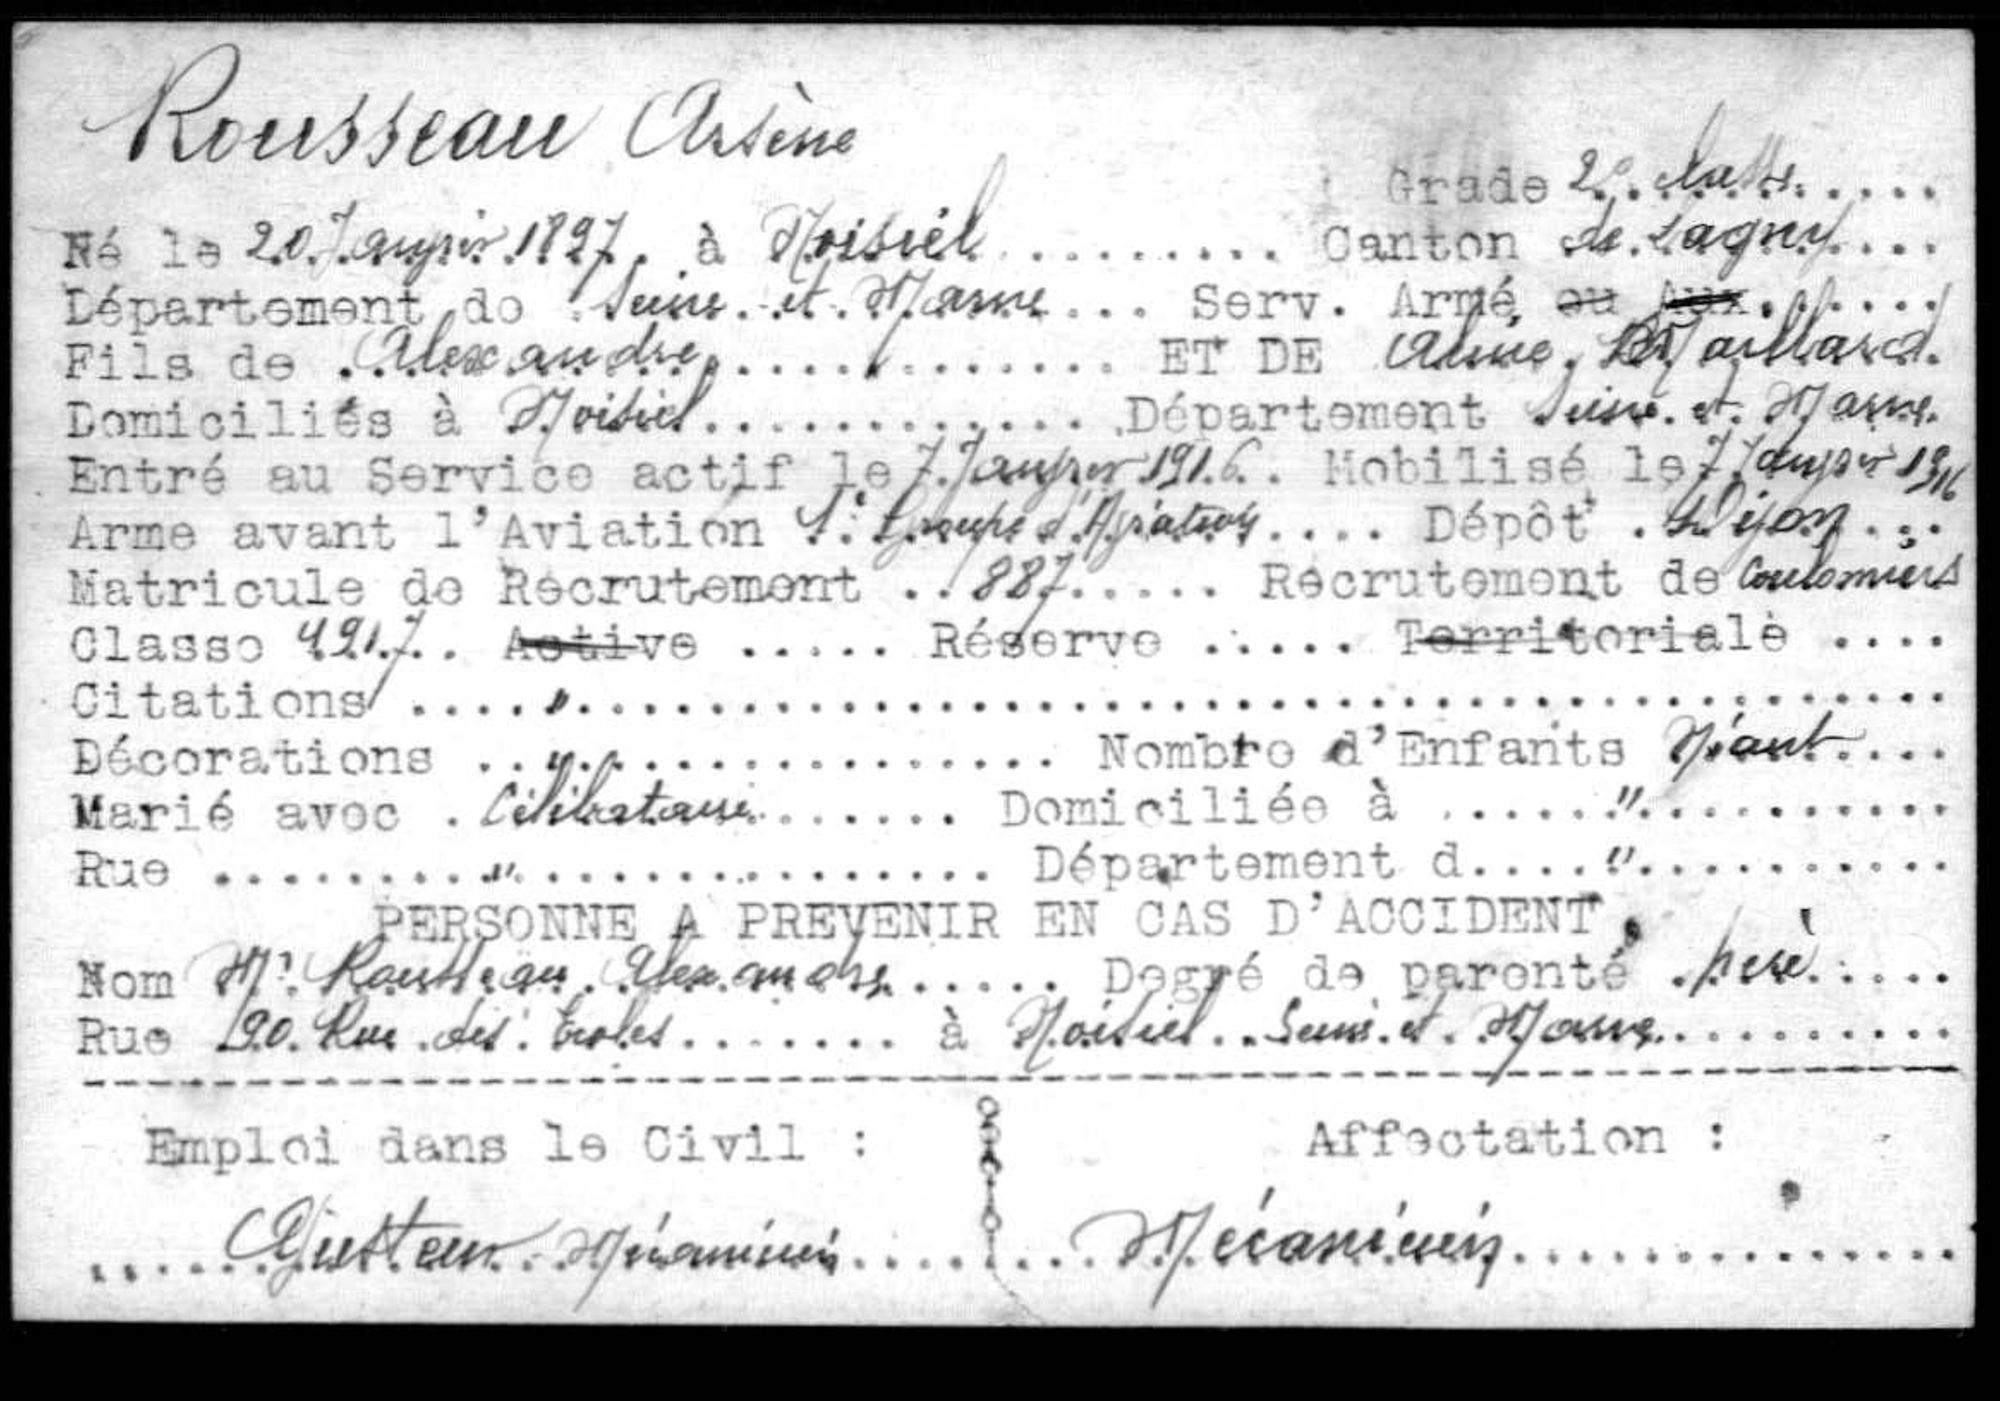 Rousseau Arsène
Grade 2e classe
Né le 20 Janvier 1897 à Noisiel Canton de Lagny
Département de Seine et Marne Serv. Armé ou Aux.
Fils de Alexandre ET DE Maillard
Domiciliés à Noisiel Département Seine et Marne
Entré au Service actif le 7 Janvier 1916 Mobilisé le 7 Janvier 1916
Arme avant l'Aviation 1er Groupe d'Aviation Dépôt Dijon
Matricule de Recrutement 887 Recrutement de Coulomiers
Classe 1917 Active Réserve Territoriale
Citations "
Décorations " Nombre d'Enfants Néant
Marié avec Célibataire Domiciliée à "
Rue " Département d "
PERSONNE A PREVENIR EN CAS D'ACCIDENT
Nom Mr Rousseau Alexandre Degré de parenté père
Rue 20 Rue des Ecoles à Noisiel Seine et Marne
Emploi dans le Civil : Affectation :
Ajusteur Mécanicien Mécanicien